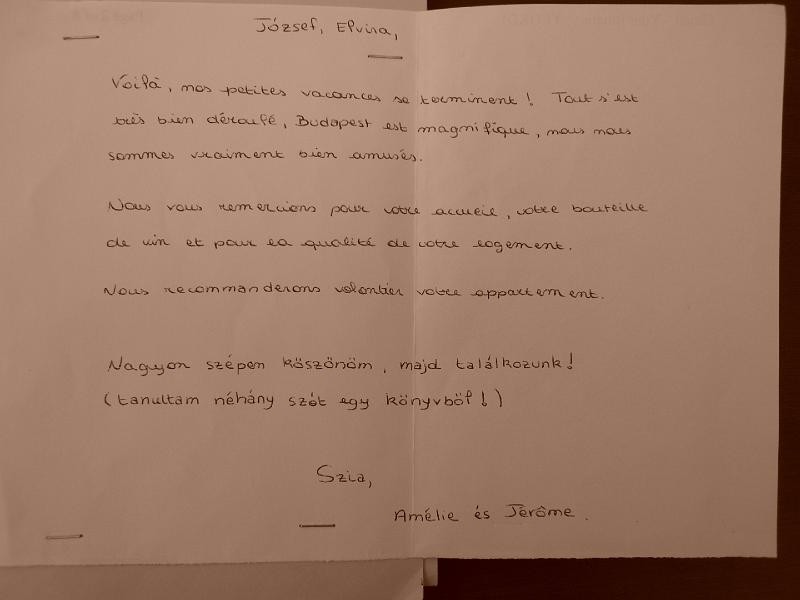 József, Elvira,
Voilà, nos petites vacances se terminent ! Tout s'est
très bien déroulé, Budapest est magnifique, nous nous
sommes vraiment bien amusés.
Nous vous remercions pour votre accueil, votre bouteille
de vin et pour la qualité de votre logement.
Nous recommanderons volontier votre appartement.
Nagyon szépen köszönöm, majd találkozunk !
(tanultam néhány szót egy könyvböl ! )
Szia,
Amélie és Jérôme.